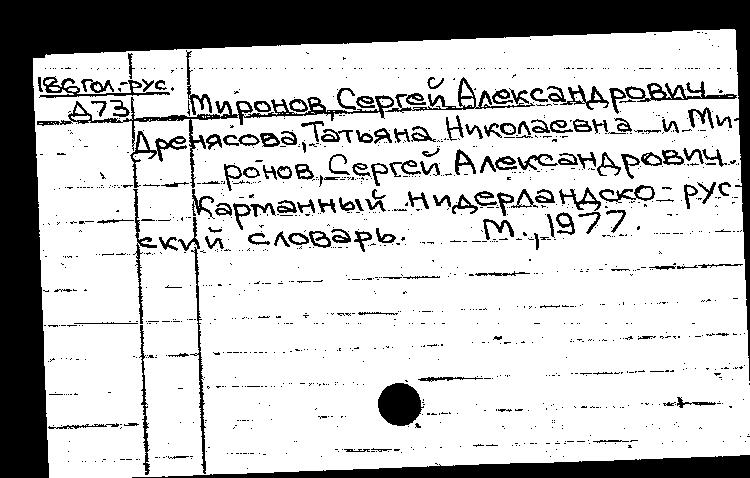 186гол.-рус.
Д73
Миронов, Сергей Александрович.
Дренясова, Татьяна Николаевна и Ми-
ронов, Сергей Александрович.
Карманный нидерландско-рус-
ский словарь. М., 1977.